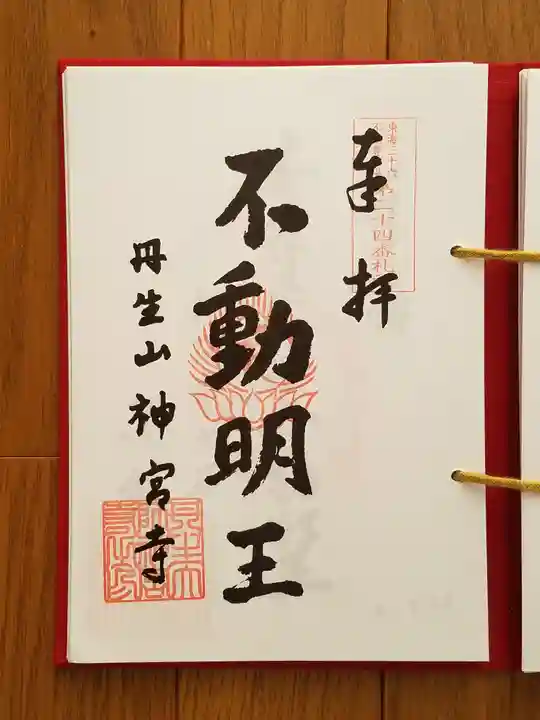 奉拝
東海三十六
第二十四番札
不動明王
丹生山神宮寺